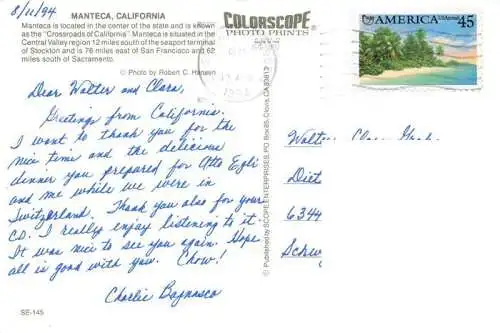 8/11/94
MANTECA, CALIFORNIA
Manteca is located in the center of the state and is known
as the "Crossroads of California". Manteca is situated in the
Central Valley region 12 miles south of the seaport terminal
of Stockton and is 76 miles east of San Francisco and 62
miles south of Sacramento.
© Photo by Robert C. Hansen
Dear Walter and Clara,
Greetings from California.
I want to thank you for the
nice time and the delicious
dinner you prepared for Otto Egli
and me while we were in
Switzerland. Thank you also for your
CD. I really enjoy listening to it.
It was nice to see you again. Hope
all is good with you. Chow!
Charlie Bagnasco
SE-145
COLORSCOPE
PHOTO PRINTS
© Published by SCOPE ENTERPRISES, PO Box 85, Clovis, CA 93613
AMERICA
USAirmail
45
Walter
Diet
6344
Schw